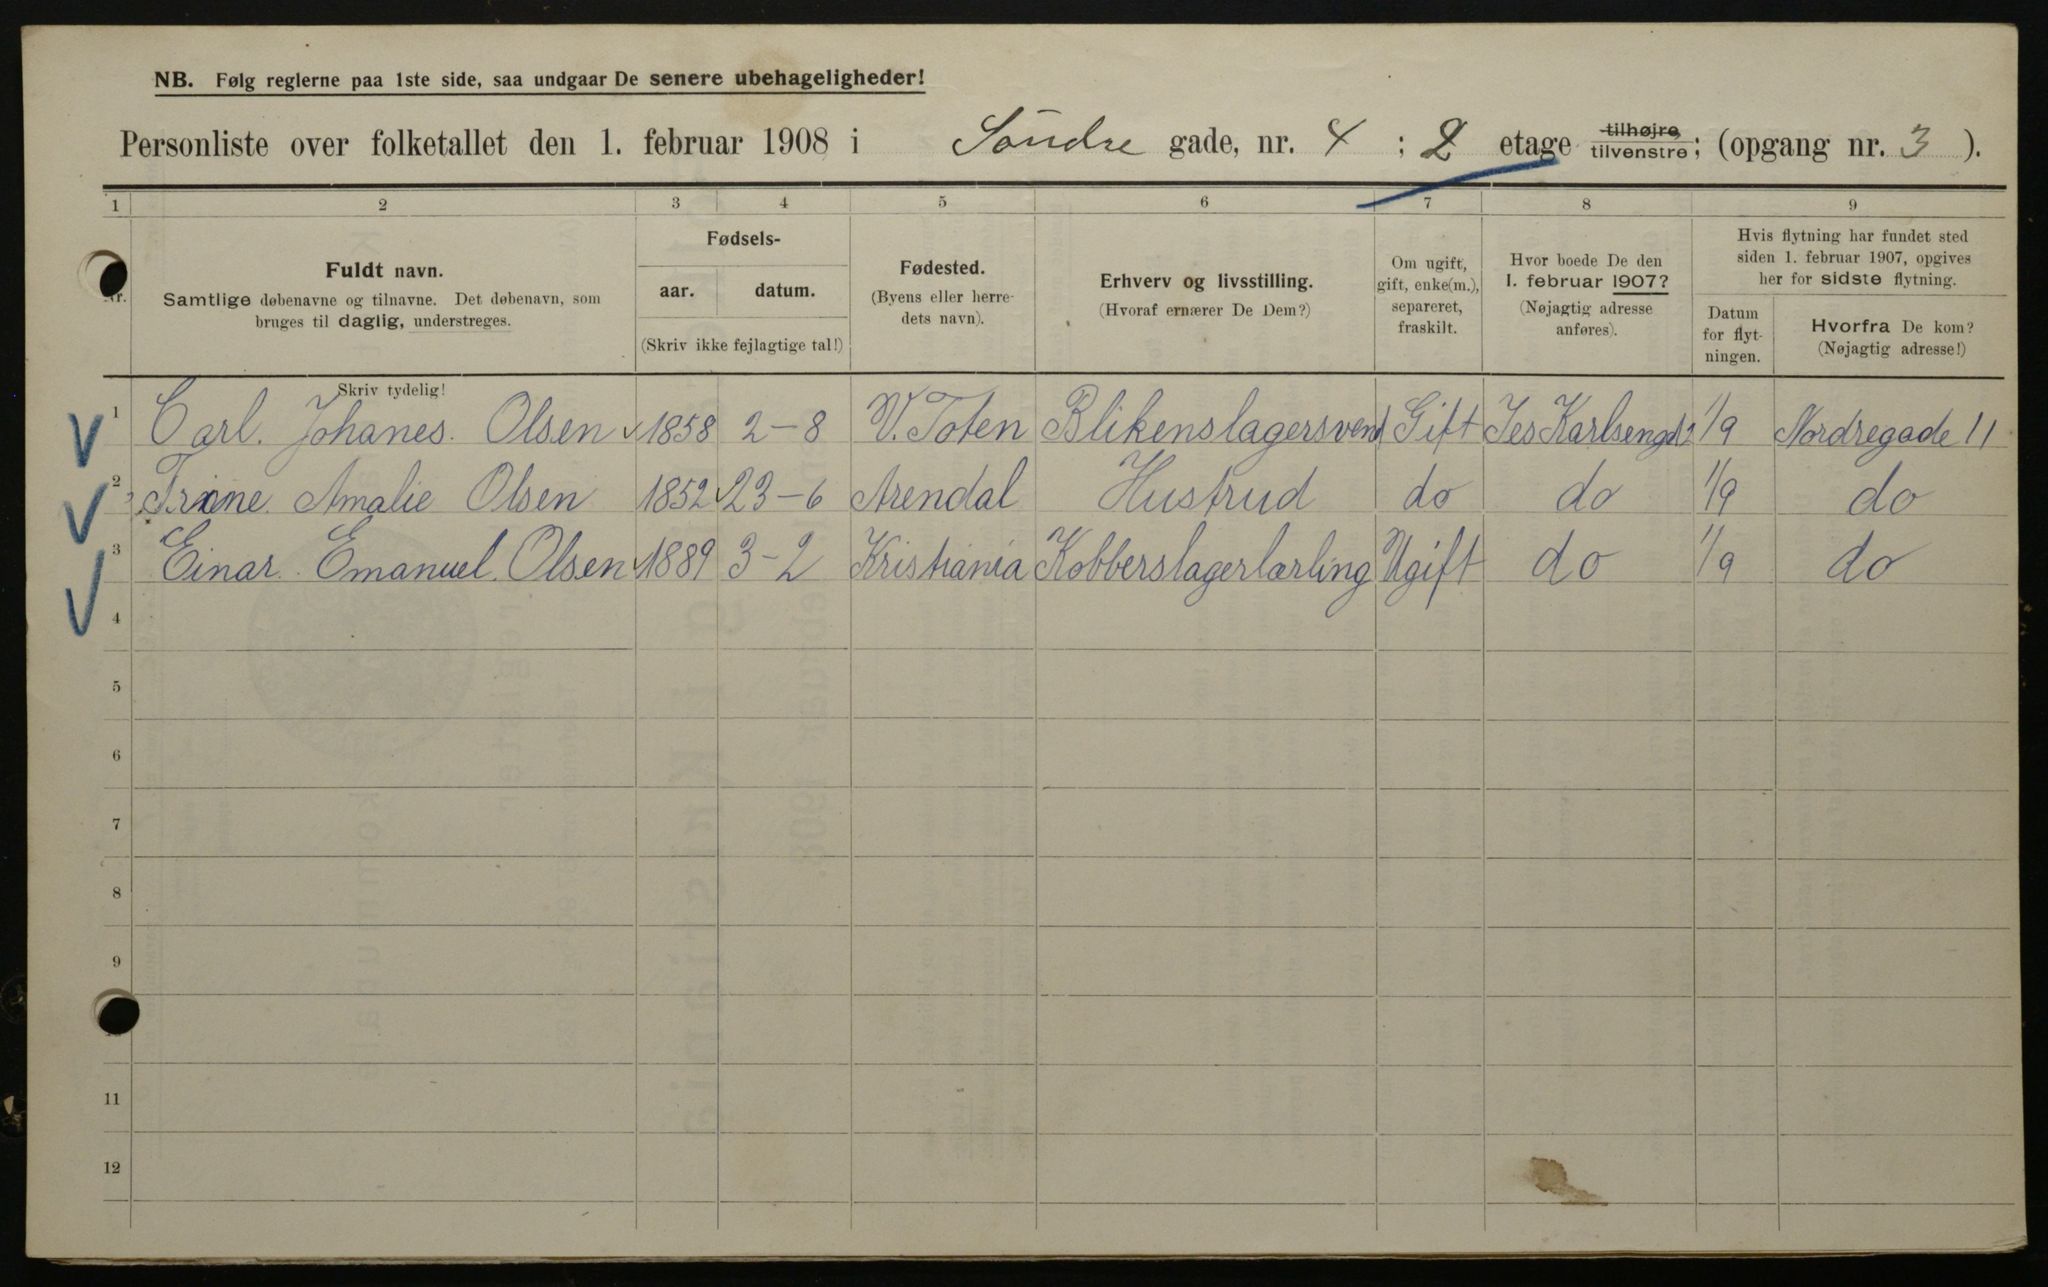 NB. Følg reglerne paa 1ste side, saa undgaar De senere ubehageligheder!
Personliste over folketallet den 1. februar 1908 i Söndre gade, nr. 4 ; 2 etage tilhøjre tilvenstre; (opgang nr. 3 ).
1 2 3 4 5 6 7 8 9
Nr.
Fuldt navn.
Samtlige døbenavne og tilnavne. Det døbenavn, som
bruges til daglig, understreges.
Skriv tydelig!
Fødsels-
aar. datum.
(Skriv ikke fejlagtige tal!)
Fødested.
(Byens eller herre-
dets navn).
Erhverv og livsstilling.
(Hvoraf ernærer De Dem?)
Om ugift,
gift, enke(m.),
separeret,
fraskilt.
Hvor boede De den
1. februar 1907?
(Nøjagtig adresse
anføres).
Hvis flytning har fundet sted
siden 1. februar 1907, opgives
her for sidste flytning.
Datum
for flyt-
ningen.
Hvorfra De kom?
(Nøjagtig adresse!)
1 Carl. Johanes. Olsen 1858 2-8 V. Toten Blikenslagersvend Gift 1/9 Nordregade 11
2 Trine. Amalie Olsen 1852 23-6 Arendal Hustrud do do 1/9 do
3 Einar. Emanuel. Olsen 1889 3-2 Kristiania Kobberslagerlærling Ugift do 1/9 do
4
5
6
7
8
9
11
12